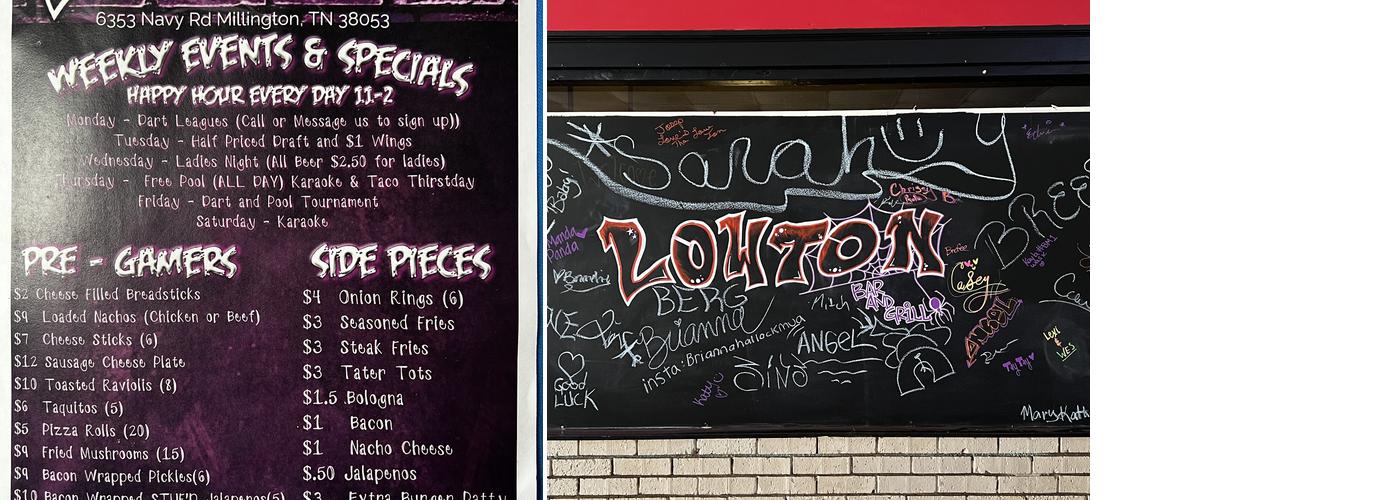 6353 Navy Rd Millington, TN 38053
WEEKLY EVENTS & SPECIALS
HAPPY HOUR EVERY DAY 11-2
Monday - Dart Leagues (Call or Message us to sign up))
Tuesday - Half Priced Draft and $1 Wings
Wednesday - Ladies Night (All Beer $2.50 for ladies)
Thursday - Free Pool (ALL DAY) Karaoke & Taco Thirstday
Friday - Dart and Pool Tournament
Saturday - Karaoke
PRE - GAMERS
$2 Cheese Filled Breadsticks
$9 Loaded Nachos (Chicken or Beef)
$7 Cheese Sticks (6)
$12 Sausage Cheese Plate
$10 Toasted Raviolis (8)
$6 Taquitos (5)
$5 Pizza Rolls (20)
$9 Fried Mushrooms (15)
$9 Bacon Wrapped Pickles(6)
$10 Bacon Wrapped STUF'D Jalapenos(5)
SIDE PIECES
$4 Onion Rings (6)
$3 Seasoned Fries
$3 Steak Fries
$3 Tater Tots
$1.5 Bologna
$1 Bacon
$1 Nacho Cheese
$.50 Jalapenos
$3 Extra Burger Patty
Sarah
Baby!
Chrissy
B
Manda
Panda
LOWTON
BREE
Casey
BERG
Mitch
BAR
AND
GRILL
Brianna
insta:Briannahallockmya
ANGEL
AUBREE
LEXI
&
WES
TayTay
Good
LUCK
Katty
MaryKath